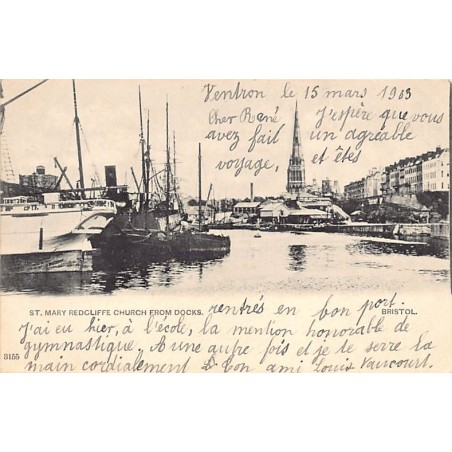 Ventron le 15 mars 1903
Cher René J'espère que vous
avez fait un agréable
voyage, et êtes
ST. MARY REDCLIFFE CHURCH FROM DOCKS. rentrés en bon port. BRISTOL.
J'ai eu hier, à l'école, la mention honorable de
gymnastique. A une autre fois et je te serre la
3155 main cordialement Ton bon ami Louis Vaucourt.